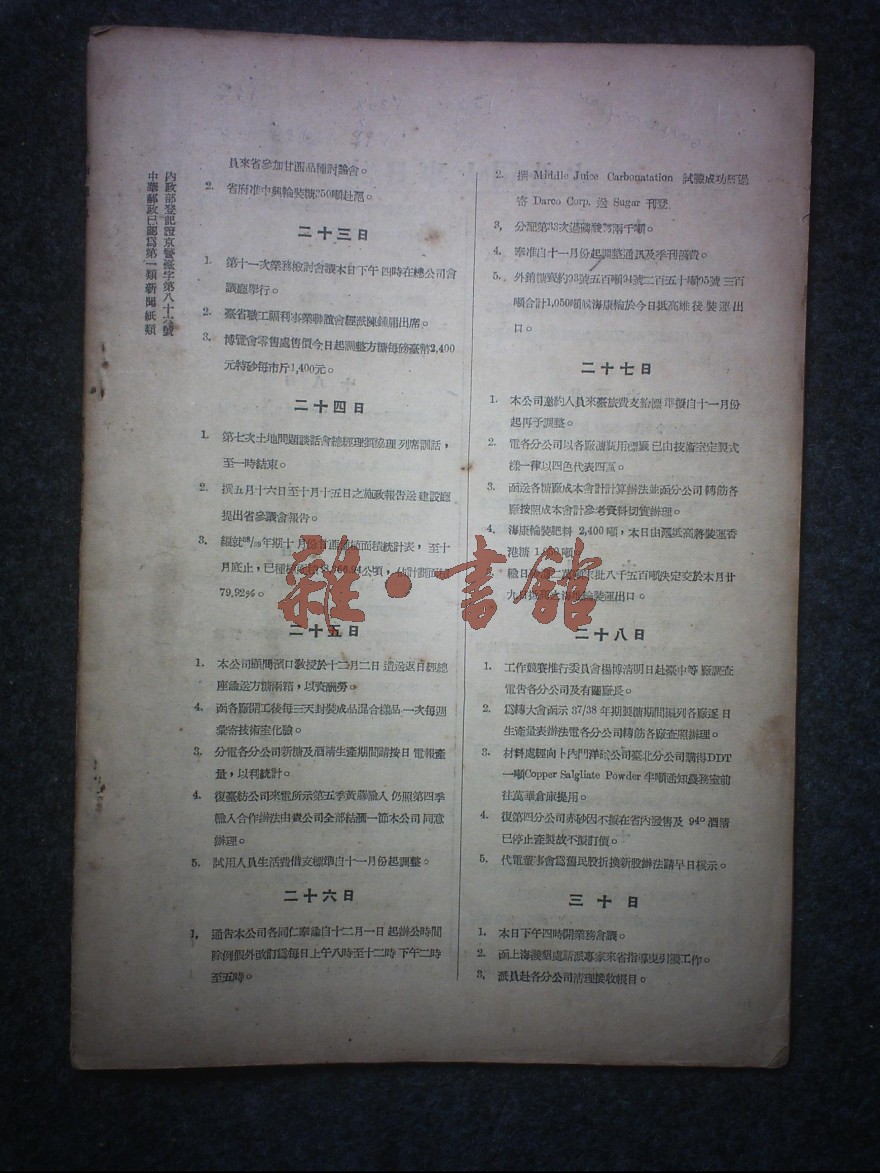 內政部登記證京警滬字第八十六號
中華郵政已認爲第一類新聞紙類
員來省參加甘蔗品種討論會。
2. 省府准中興輪裝糖350噸赴滬。
二十三日
1. 第十一次業務檢討會議本日下午四時在總公司會
議廳舉行。
2. 臺省職工福利事業聯誼會經派陳鍾庸出席。
3. 博覽會零售處售價今日起調整方糖每磅臺幣2,400
元特砂每市斤1,400元。
二十四日
1. 第七次土地問題談話會總經理劉協理列席訓話，
至一時結束。
2. 撰五月十六日至十月十五日之施政報告送建設廳
提出省參議會報告。
3. 年期十月份甘蔗種植面積統計表，至十
月底止，已種植 公頃，佔計劃面積
79.92%。
二十五日
1. 本公司顧問濱口敎授於十二月二日遣送返日經總
座諭送方糖兩箱，以資酬勞。
4. 函各廠開工後每三天封裝成品混合樣品一次每週
彙寄技術室化驗。
3. 分電各分公司新糖及酒精生產期間請按日電報產
量，以利統計。
4. 復臺紡公司來電所示第五季黃蔴繳入仍照第四季
繳入合作辦法由貴公司全部結匯一節本公司同意
辦理。
5. 試用人員生活費借支標準自十一月份起調整。
二十六日
1. 通告本公司各同仁奉諭自十二月一日起辦公時間
除例假外改訂爲每日上午八時至十二時下午二時
至五時。
2. 撰 Middle Juice Carbonatation 試驗成功經過
寄 Darco Corp. 送 Sugar 刊登
3. 分配第33次 兩千噸。
4. 奉准自十一月份起調整通訊及季刊稿費。
5. 外銷 93號五百噸94號二百五十噸95號三百
噸合計1,050噸 海康輪於今日抵高雄後裝運出
口。
二十七日
1. 本公司邀約人員來臺旅費支給標準擬自十一月份
起再予調整。
2. 電各分公司以各廠糖裝用標籤已由技術室定製式
樣一律以四色代表四蓋。
3. 函送各糖廠成本會計計算辦法並函分公司轉飭各
廠按照成本會計參考資料切實辦理。
4. 海康輪裝肥料 2,400噸，本日由滬抵高將裝運香
港糖
批八千五百噸決定交於本月廿
九日 輪裝運出口。
二十八日
1. 工作競賽推行委員會楊博清明日赴臺中等廠調查
電告各分公司及有關廠長。
2. 爲轉大會函示 37/38 年期製糖期間編列各廠逐日
生產量表辦法電各分公司轉飭各廠查照辦理。
3. 材料處經向卜內門洋鹼公司臺北分公司購得DDT
一噸Copper Salgliate Powder 半噸通知農務室前
往萬華倉庫提用。
4. 復第四分公司赤砂因不擬在省內發售及 94° 酒精
已停止產製故不擬訂價。
5. 代電董事會爲舊民股折換新股辦法請早日核示。
三十日
1. 本日下午四時開業務會議。
2. 函上海 墾處請派專家來省指導曳引機工作。
3. 派員赴各分公司清理接收帳目。
雜·書館